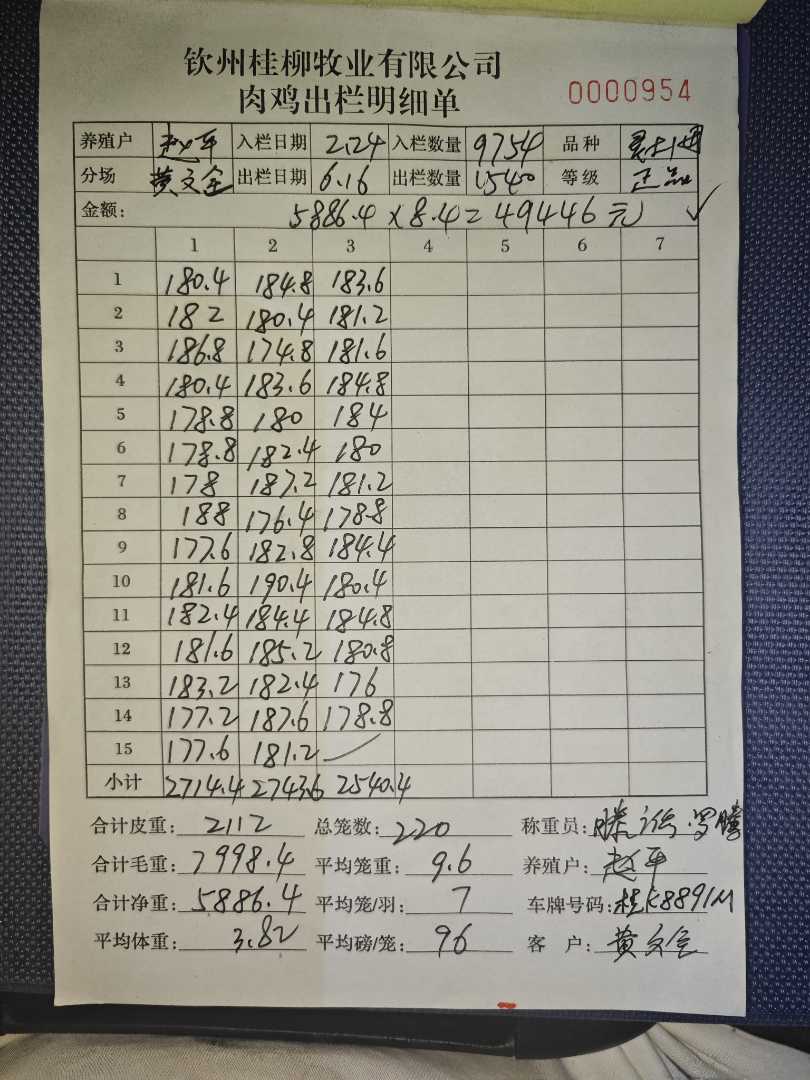 钦州桂柳牧业有限公司
肉鸡出栏明细单 0000954
养殖户 赵平 入栏日期 2.24 入栏数量 9754 品种
分场 黄文全 出栏日期 6.16 出栏数量 1540 等级 正品
金额: 5886.4×8.4=49446元 ✓
1 2 3 4 5 6 7
1 180.4 184.8 183.6
2 182 180.4 181.2
3 186.8 174.8 181.6
4 180.4 183.6 184.8
5 178.8 180 184
6 178.8 182.4 180
7 178 187.2 181.2
8 188 176.4 178.8
9 177.6 182.8 184.4
10 181.6 190.4 180.4
11 182.4 184.4 184.8
12 181.6 185.2 180.8
13 183.2 182.4 176
14 177.2 187.6 178.8
15 177.6 181.2
小计 2714.4 2743.6 2540.4
合计皮重: 2112 总笼数: 220 称重员:
合计毛重: 7998.4 平均笼重: 9.6 养殖户: 赵平
合计净重: 5886.4 平均笼/羽: 7 车牌号码: 桂K8891M
平均体重: 3.82 平均磅/笼: 96 客 户: 黄文全